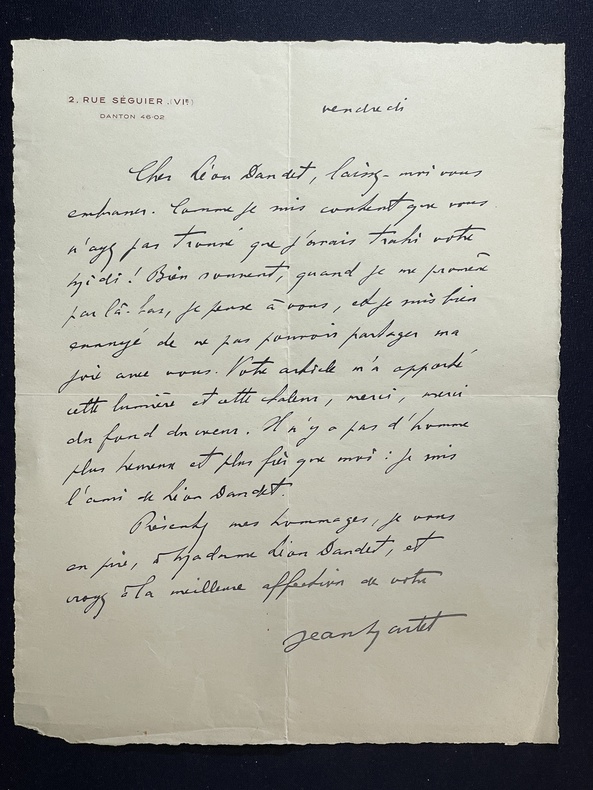 2. RUE SÉGUIER (VIe)
DANTON 46-02
vendredi
Cher Léon Daudet, laissez-moi vous
embrasser. Comme je suis content que vous
n'ayez pas trouvé que j'avais trahi votre
Midi ! Bien souvent, quand je me promène
par là-bas, je pense à vous, et je suis bien
ennuyé de ne pas pouvoir partager ma
joie avec vous. Votre article m'a apporté
cette lumière et cette chaleur, merci, merci
du fond du cœur. Il n'y a pas d'homme
plus heureux et plus fier que moi : je suis
l'ami de Léon Daudet.
Présentez mes hommages, je vous
en prie, à Madame Léon Daudet, et
croyez à la meilleure affection de votre
Jean Martet